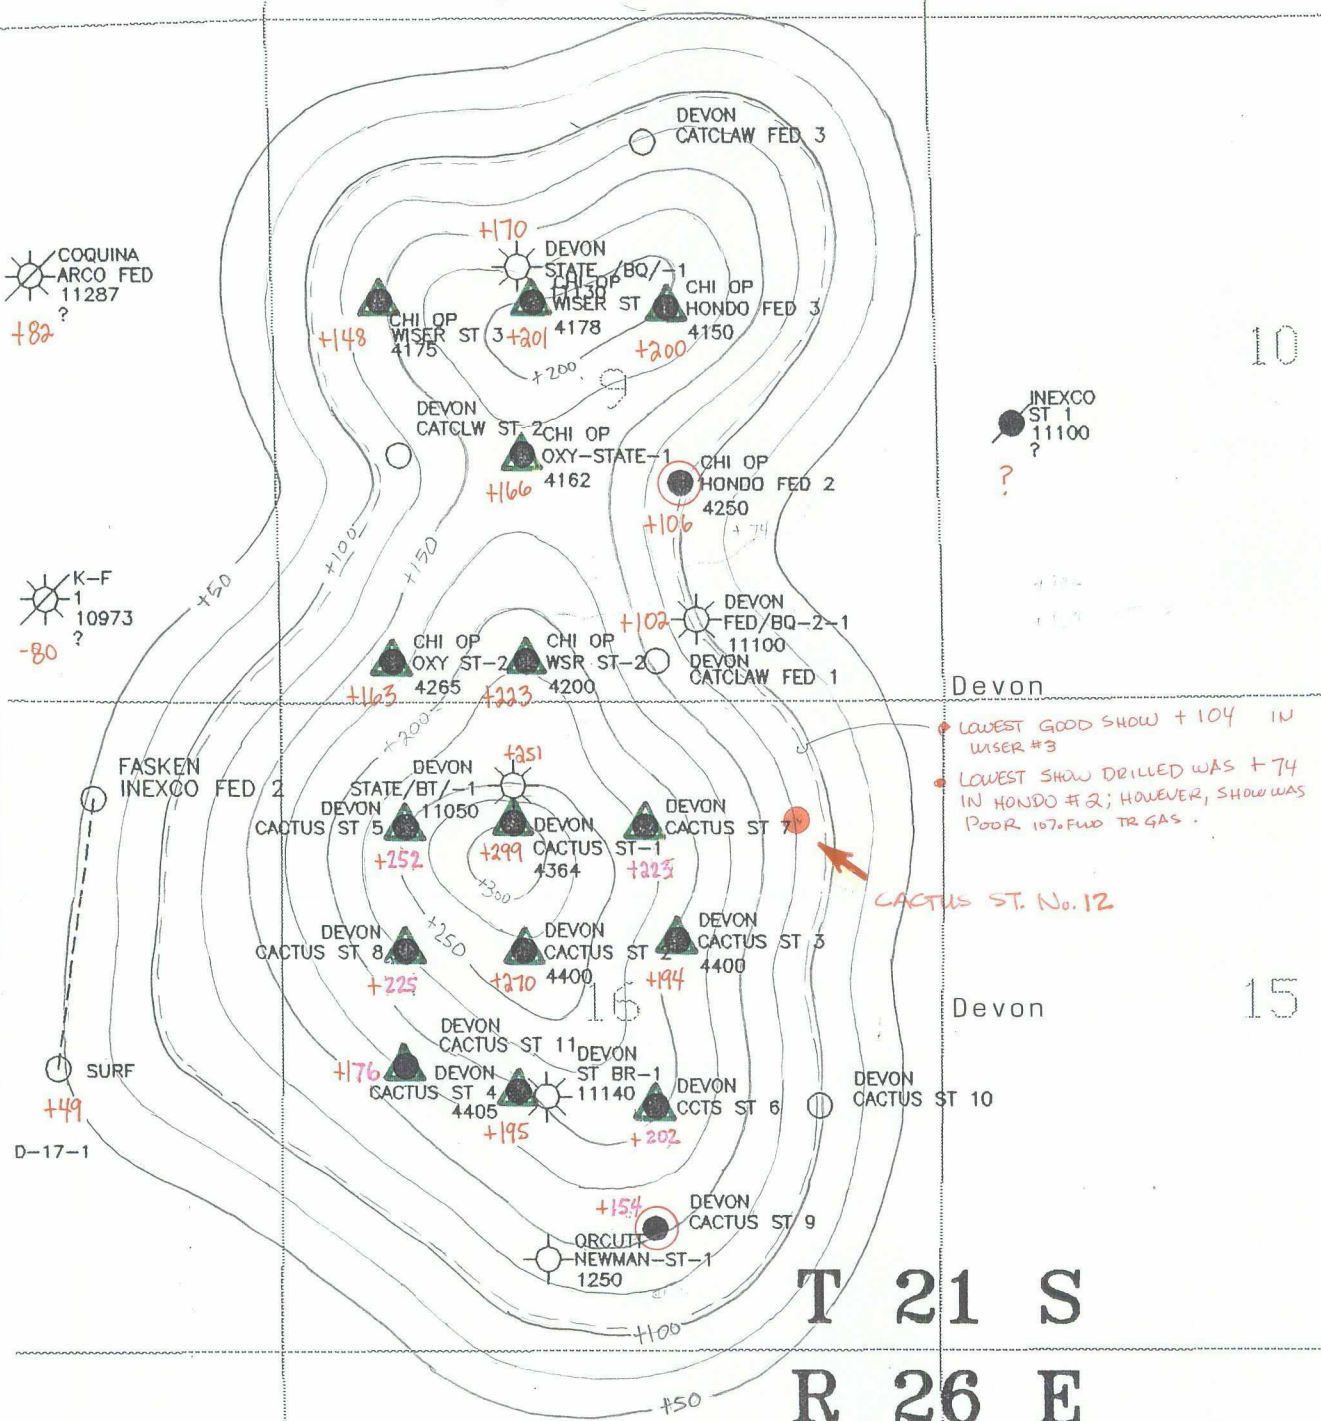 DEVON
CATCLAW FED 3
+170
COQUINA
ARCO FED
11287
?
+82
DEVON
STATE /BQ/-1
11130
CHI OP
WISER ST
4178
+201
CHI OP
HONDO FED 3
4150
+200
CHI OP
WISER ST 3
4175
+148
+200
9
10
INEXCO
ST 1
11100
?
?
DEVON
CATCLW ST 2
CHI OP
OXY-STATE-1
4162
+166
CHI OP
HONDO FED 2
4250
+106
+74
+100
+150
+50
K-F
1
10973
?
-80
DEVON
FED/BQ-2-1
11100
+102
CHI OP
OXY ST-2
4265
+163
CHI OP
WSR ST-2
4200
+223
DEVON
CATCLAW FED 1
Devon
• LOWEST GOOD SHOW +104 IN
WISER #3
• LOWEST SHOW DRILLED WAS +74
IN HONDO #2; HOWEVER, SHOW WAS
POOR 10% FLUO TR GAS.
+200
+251
FASKEN
INEXCO FED 2
DEVON
STATE/BT/-1
11050
DEVON
CACTUS ST 5
+252
DEVON
CACTUS ST-1
4364
+299
DEVON
CACTUS ST 7
+223
+300
CACTUS ST. No. 12
+250
DEVON
CACTUS ST 8
+225
DEVON
CACTUS ST 2
4400
+270
DEVON
CACTUS ST 3
4400
+194
16
Devon
15
DEVON
CACTUS ST 11
+176
DEVON
CACTUS ST 4
4405
+195
DEVON
ST BR-1
11140
DEVON
CCTS ST 6
+202
DEVON
CACTUS ST 10
SURF
+49
D-17-1
+154
DEVON
CACTUS ST 9
ORCUTT
NEWMAN-ST-1
1250
T 21 S
+100
R 26 E
+50